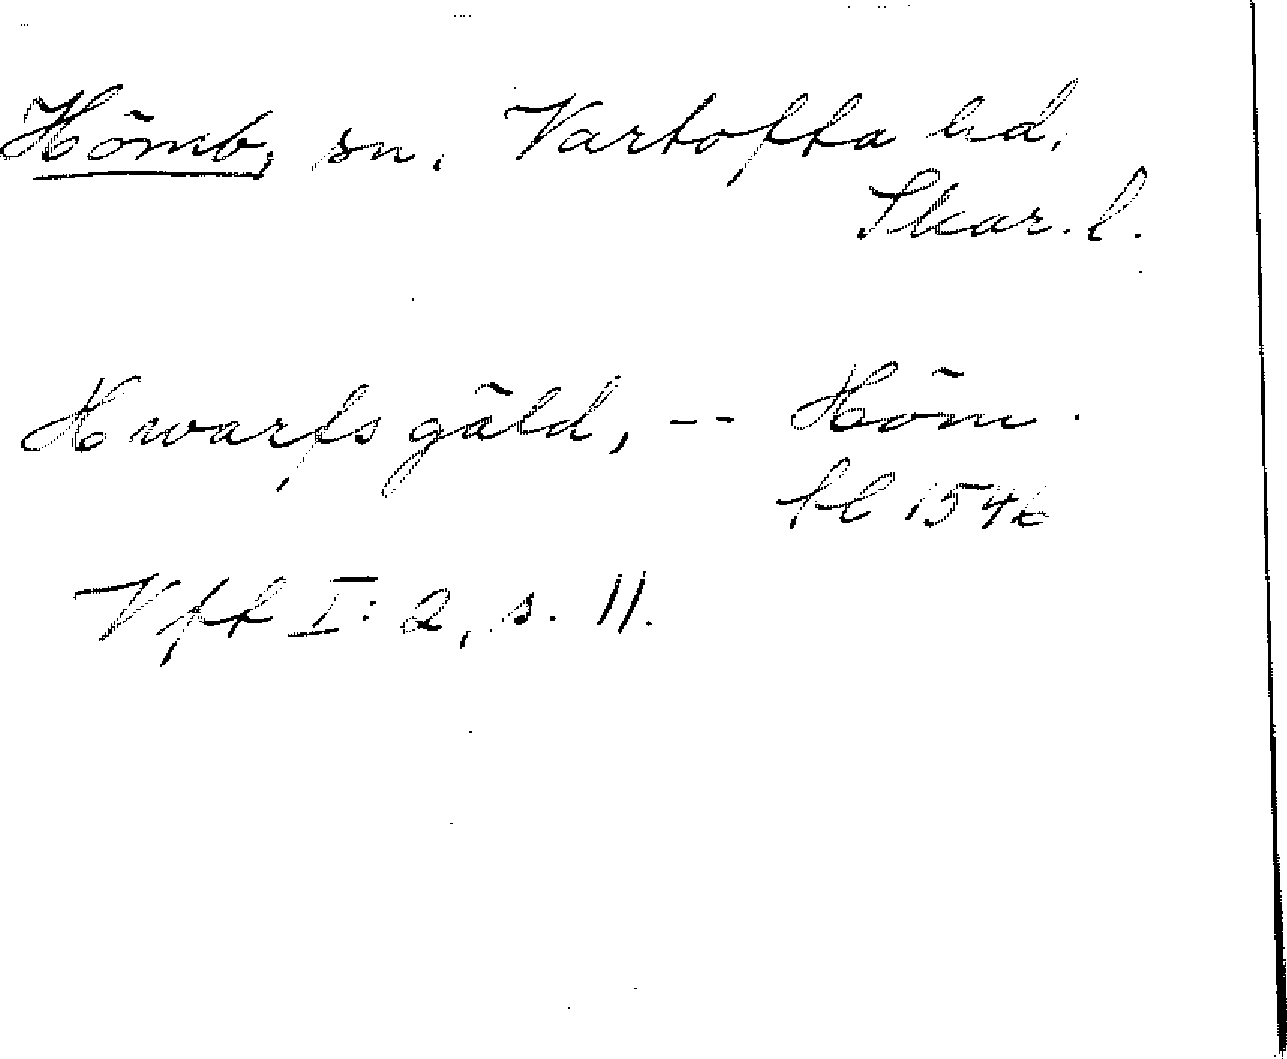 Hömb, sn. Vartofta hd.
Skar. l.
Hwarfs gäld, -- Höm.
fl 1546
Vft I: 2, s. 11.